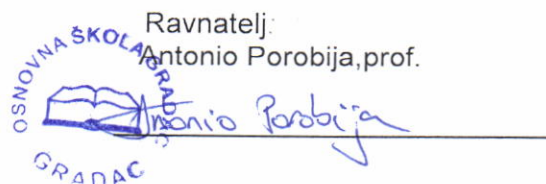 Ravnatelj:
Antonio Porobija,prof.
OSNOVNA ŠKOLA GRADAC
GRADAC
Antonio Porobija